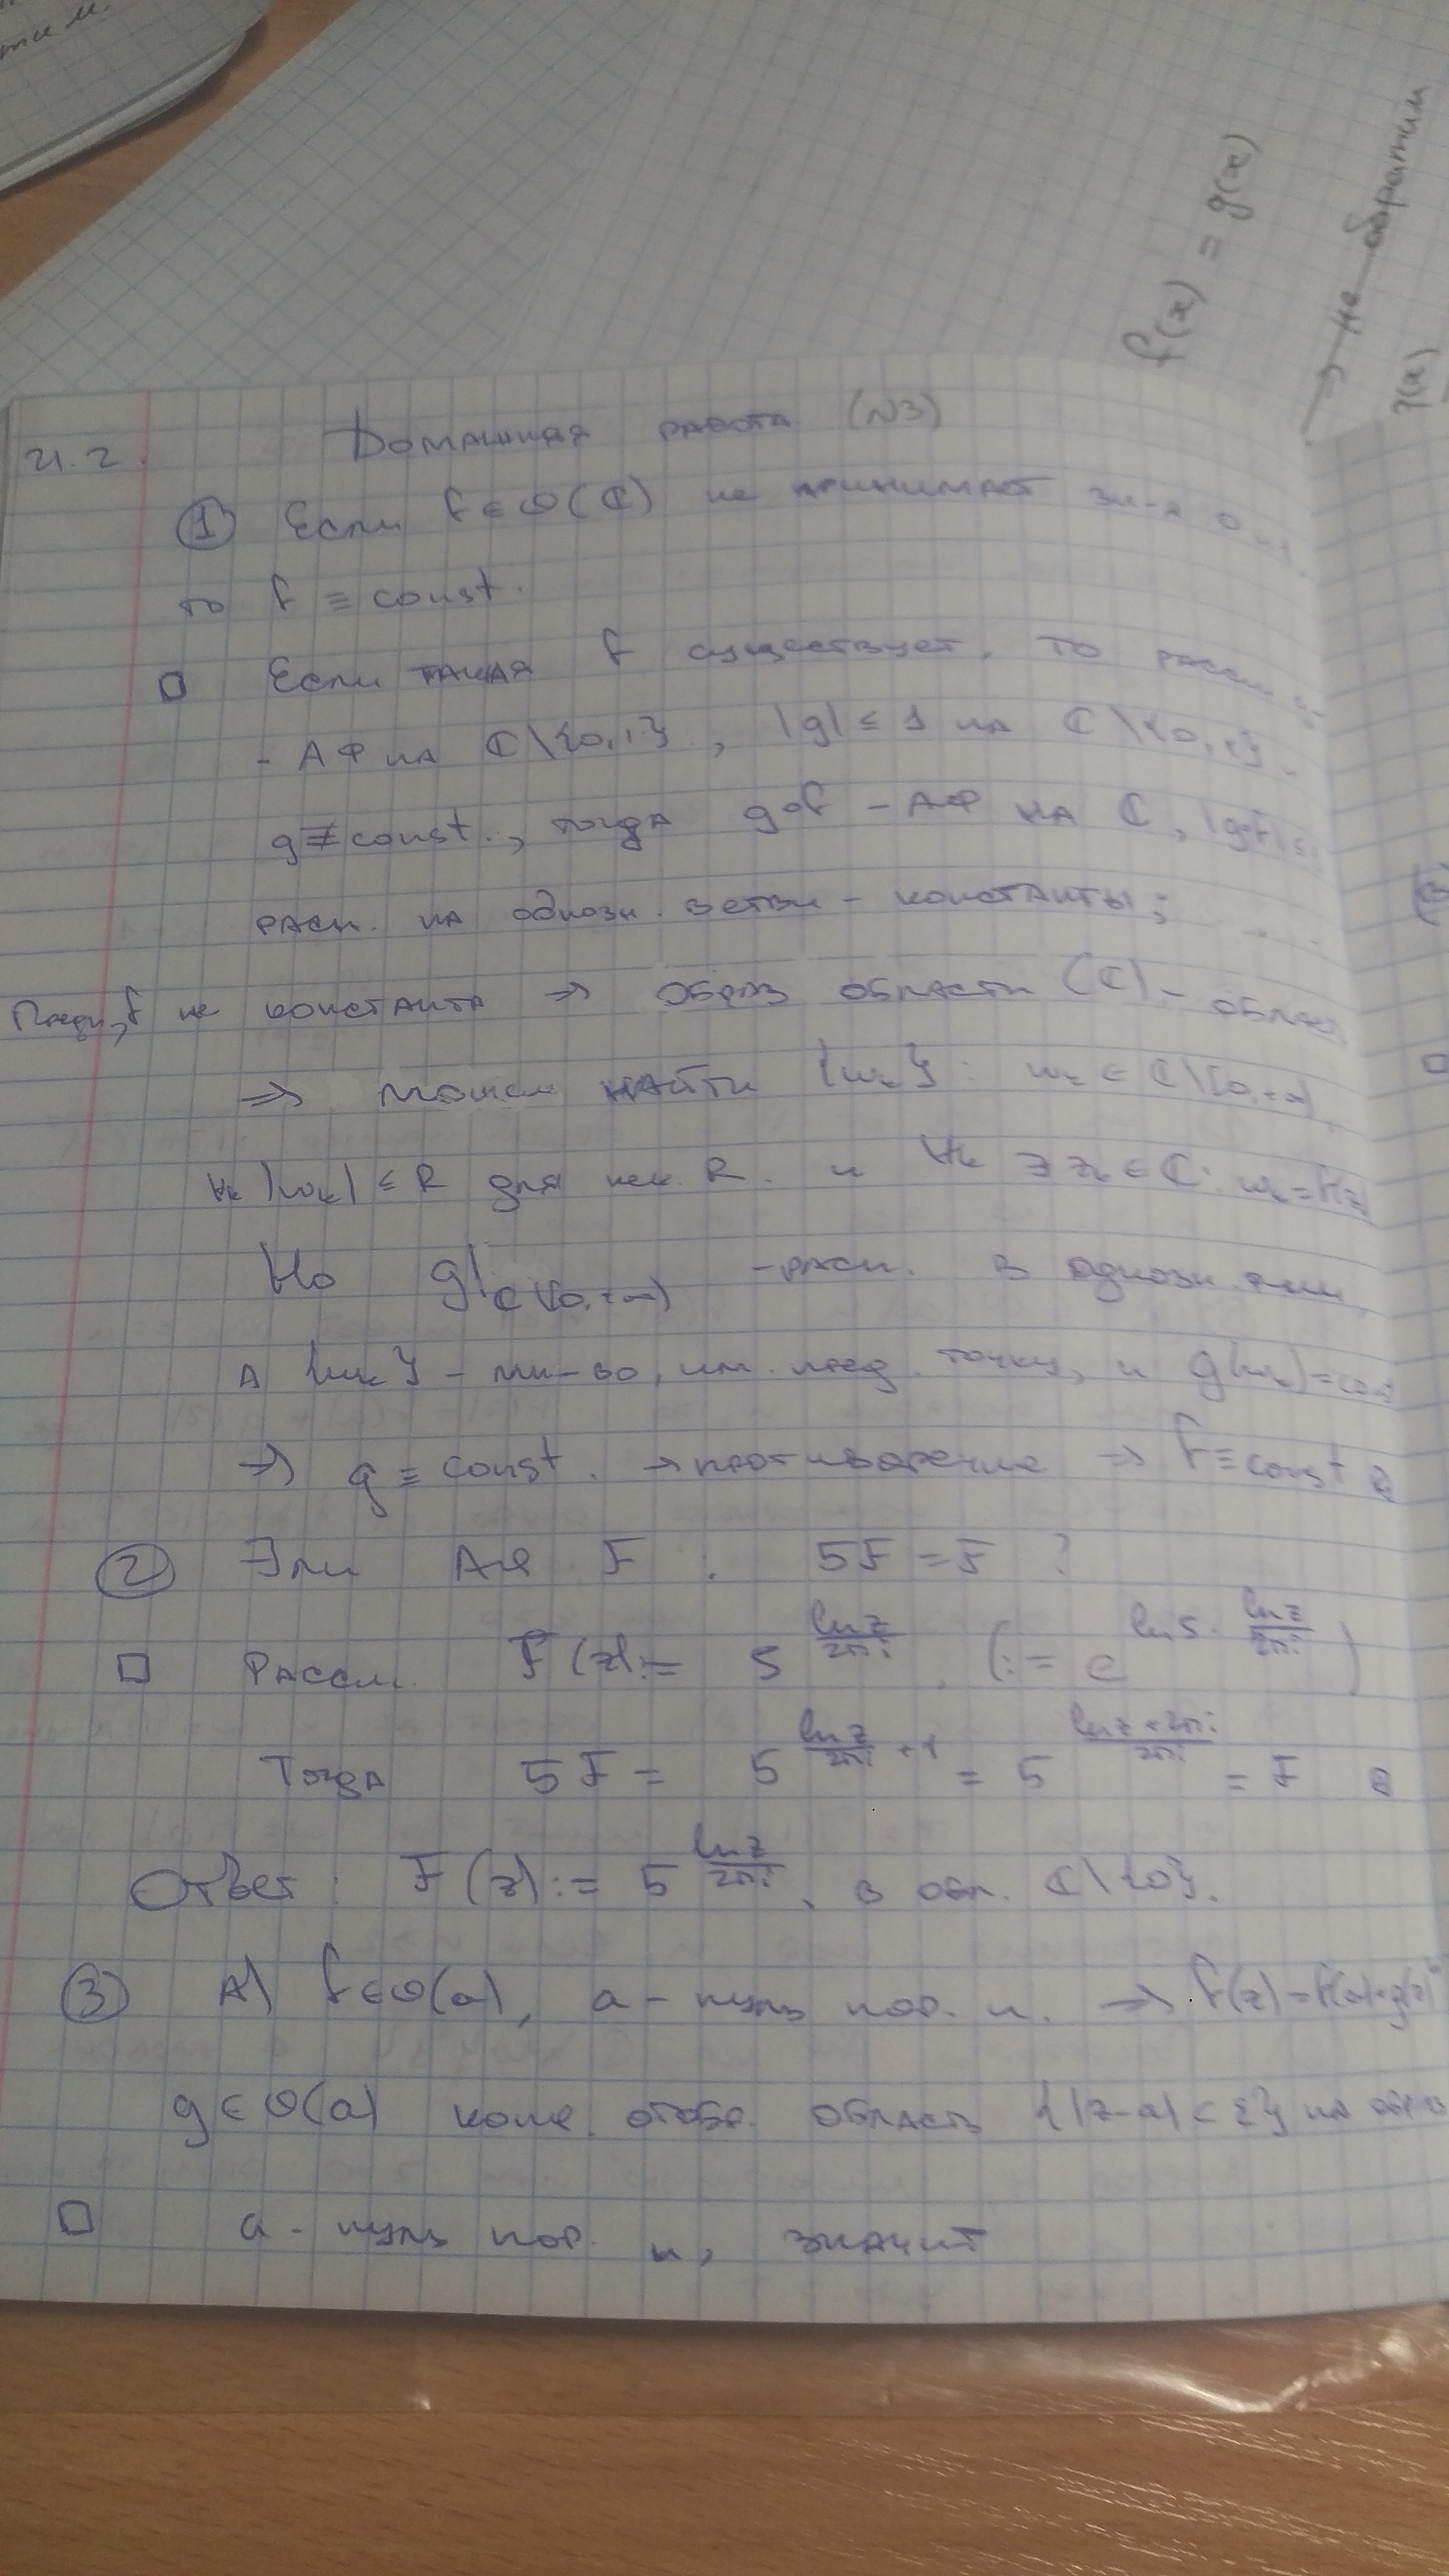 f(x) = g(x)
→ не обратим
21.2. Домашняя работа (N3)
① Если f ∈ O(ℂ) не принимает зн-я 0 и 1,
то f ≡ const.
□ Если такая f существует, то рассм.
- АФ на ℂ\{0,1}, |g| ≤ 1 на ℂ\{0,1}.
g ≢ const., тогда g∘f - АФ на ℂ, |g∘f| ≤ 1
расп. на однозн. ветви - константы;
f не константа ⇒ образ области (ℂ) - област
⇒ можем найти {wₖ} : wₖ ∈ ℂ\[0,+∞)
∀k |wₖ| ≤ R для нек. R. и ∀k ∃ zₖ ∈ ℂ: wₖ = f(zₖ)
Но g|ℂ\[0,+∞) - расп. в однозн
А {wₖ} - мн-во, им. пред. точку, и g(wₖ) = const
⇒ g ≡ const. → противоречие ⇒ f ≡ const
② ∃ ли АФ F : 5F = F ?
□ Рассм. F(z) := 5^{ln z / 2πi}. (:= e^{ln 5 · ln z / 2πi})
Тогда 5F = 5^{ln z / 2πi + 1} = 5^{(ln z + 2πi) / 2πi} = F
Ответ: F(z) := 5^{ln z / 2πi}. в обл. ℂ\{0}.
③ А) f ∈ O(a), a - нуль пор. n. ⇒ f(z) = f(a) + g(z)ⁿ
g ∈ O(a) конф. отобр. область {|z-a| < ε} на
□ a - нуль пор. n, значит